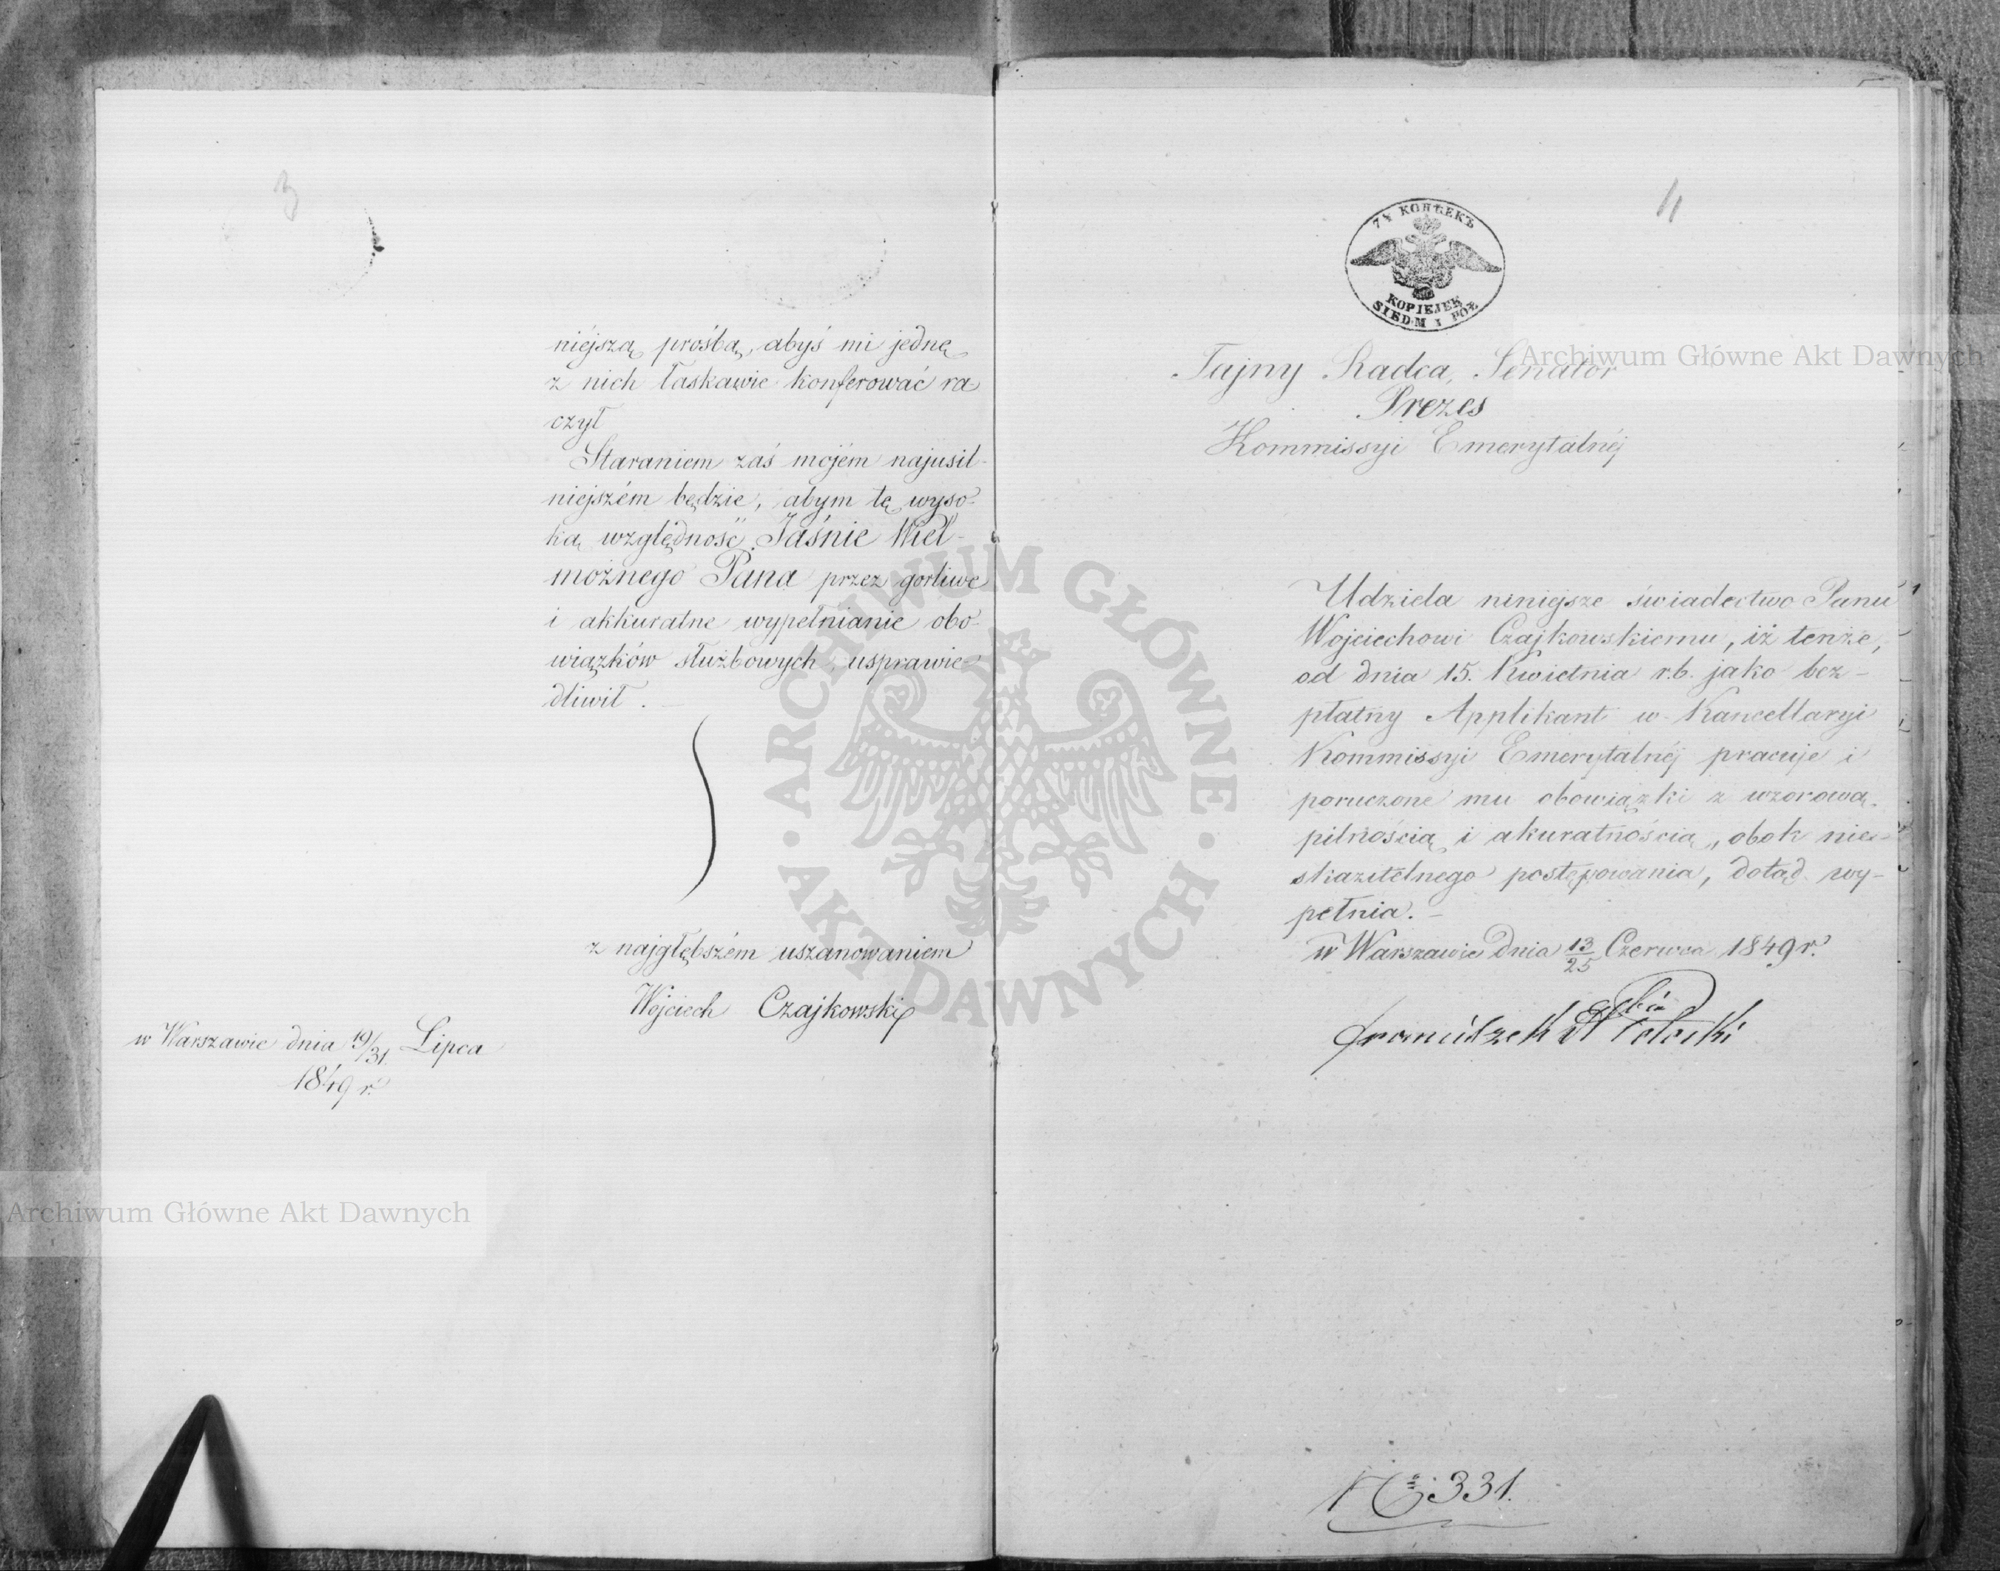 3
niéjszą prośbą, abyś mi jednę
z nich łaskawie konferować ra
czył
Staraniem zaś mojém najusil-
niejszém będzie, abym tę wyso-
ką względność Jaśnie Wiel-
możnego Pana przez gorliwe
i akkuratne wypełnianie obo-
wiązków służbowych, usprawie-
dliwił.
z najgłębszém uszanowaniem
Wojciech Czajkowski
w Warszawie dnia 19/31 Lipca
1849 r.
Archiwum Główne Akt Dawnych
ARCHIWUM GŁÓWNE
AKT DAWNYCH
7½ КОПѢЕКЪ
KOPIEJEK
SIEDM I PÓŁ
Archiwum Główne Akt Dawnych
Tajny Radca, Senator
Prezes
Kommissyi Emerytalnéj
Udziela niniejsze świadectwo Panu
Wojciechowi Czajkowskiemu, iż tenże,
od dnia 15. Kwietnia r.b. jako bez-
płatny Applikant w Kancellaryi
Kommissyi Emerytalnéj pracuje i
poruczone mu obowiązki z wzorową
pilnością i akuratnością, obok nie-
skazitelnego postępowania, dotąd wy-
pełnia.
w Warszawie dnia 13/25 Czerwca 1849 r.
Franciszek Potocki
No 331.